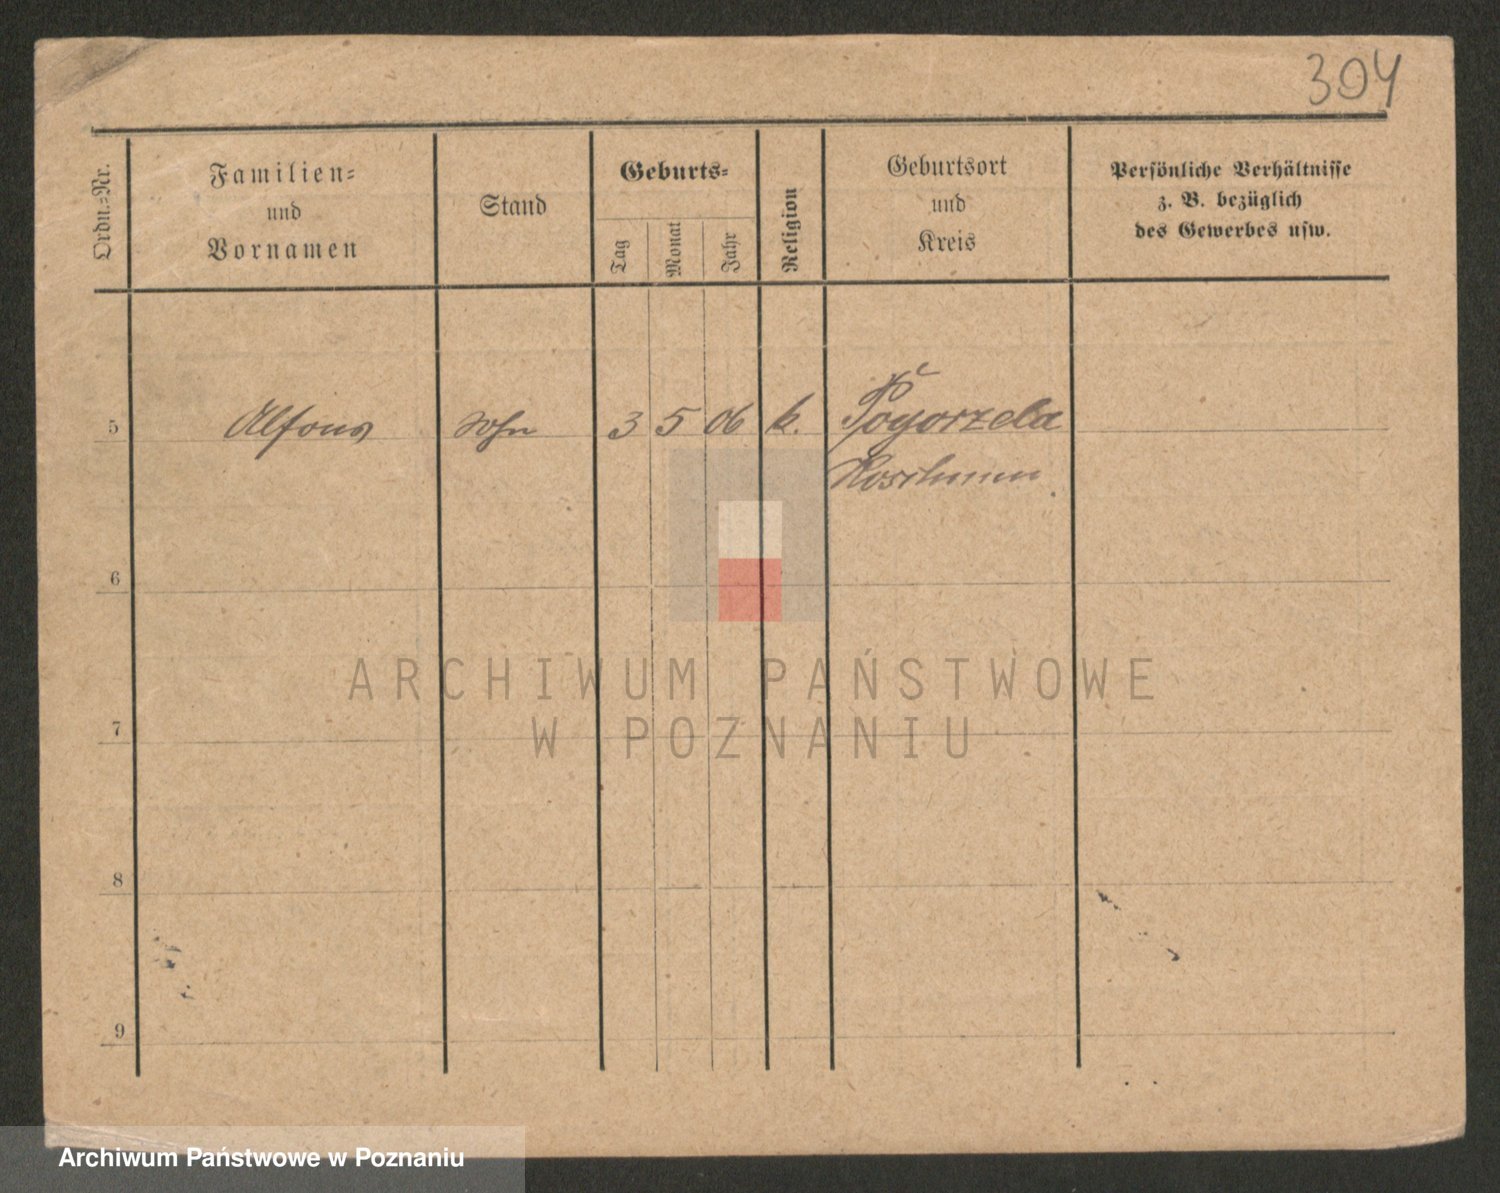 304
Ordn.-Nr.
Familien-
und
Vornamen
Stand
Geburts-
Tag
Monat
Jahr
Religion
Geburtsort
und
Kreis
Persönliche Verhältnisse
z. B. bezüglich
des Gewerbes usw.
5 Alfons Sohn 3 5 06 k. Pogorzela
Koschmin
6
7
8
9
ARCHIWUM PAŃSTWOWE
W POZNANIU
Archiwum Państwowe w Poznaniu